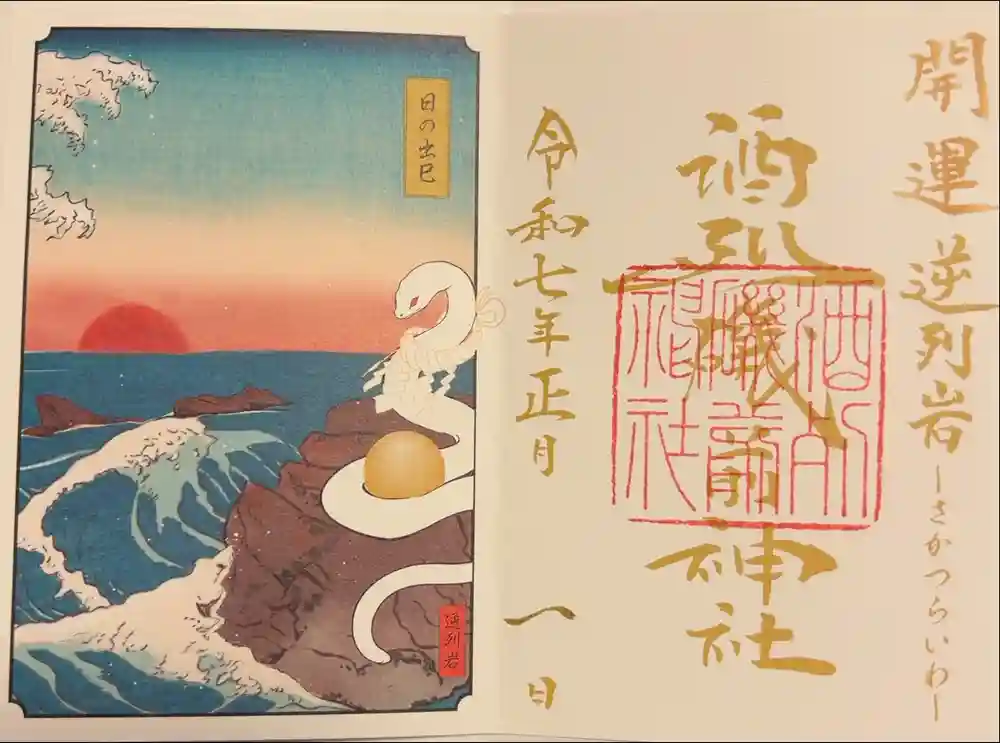 開運 逆列岩ーさかつらいわー
酒列磯前神社
酒列磯前神社
令和七年正月 一日
日の出巳
逆列岩